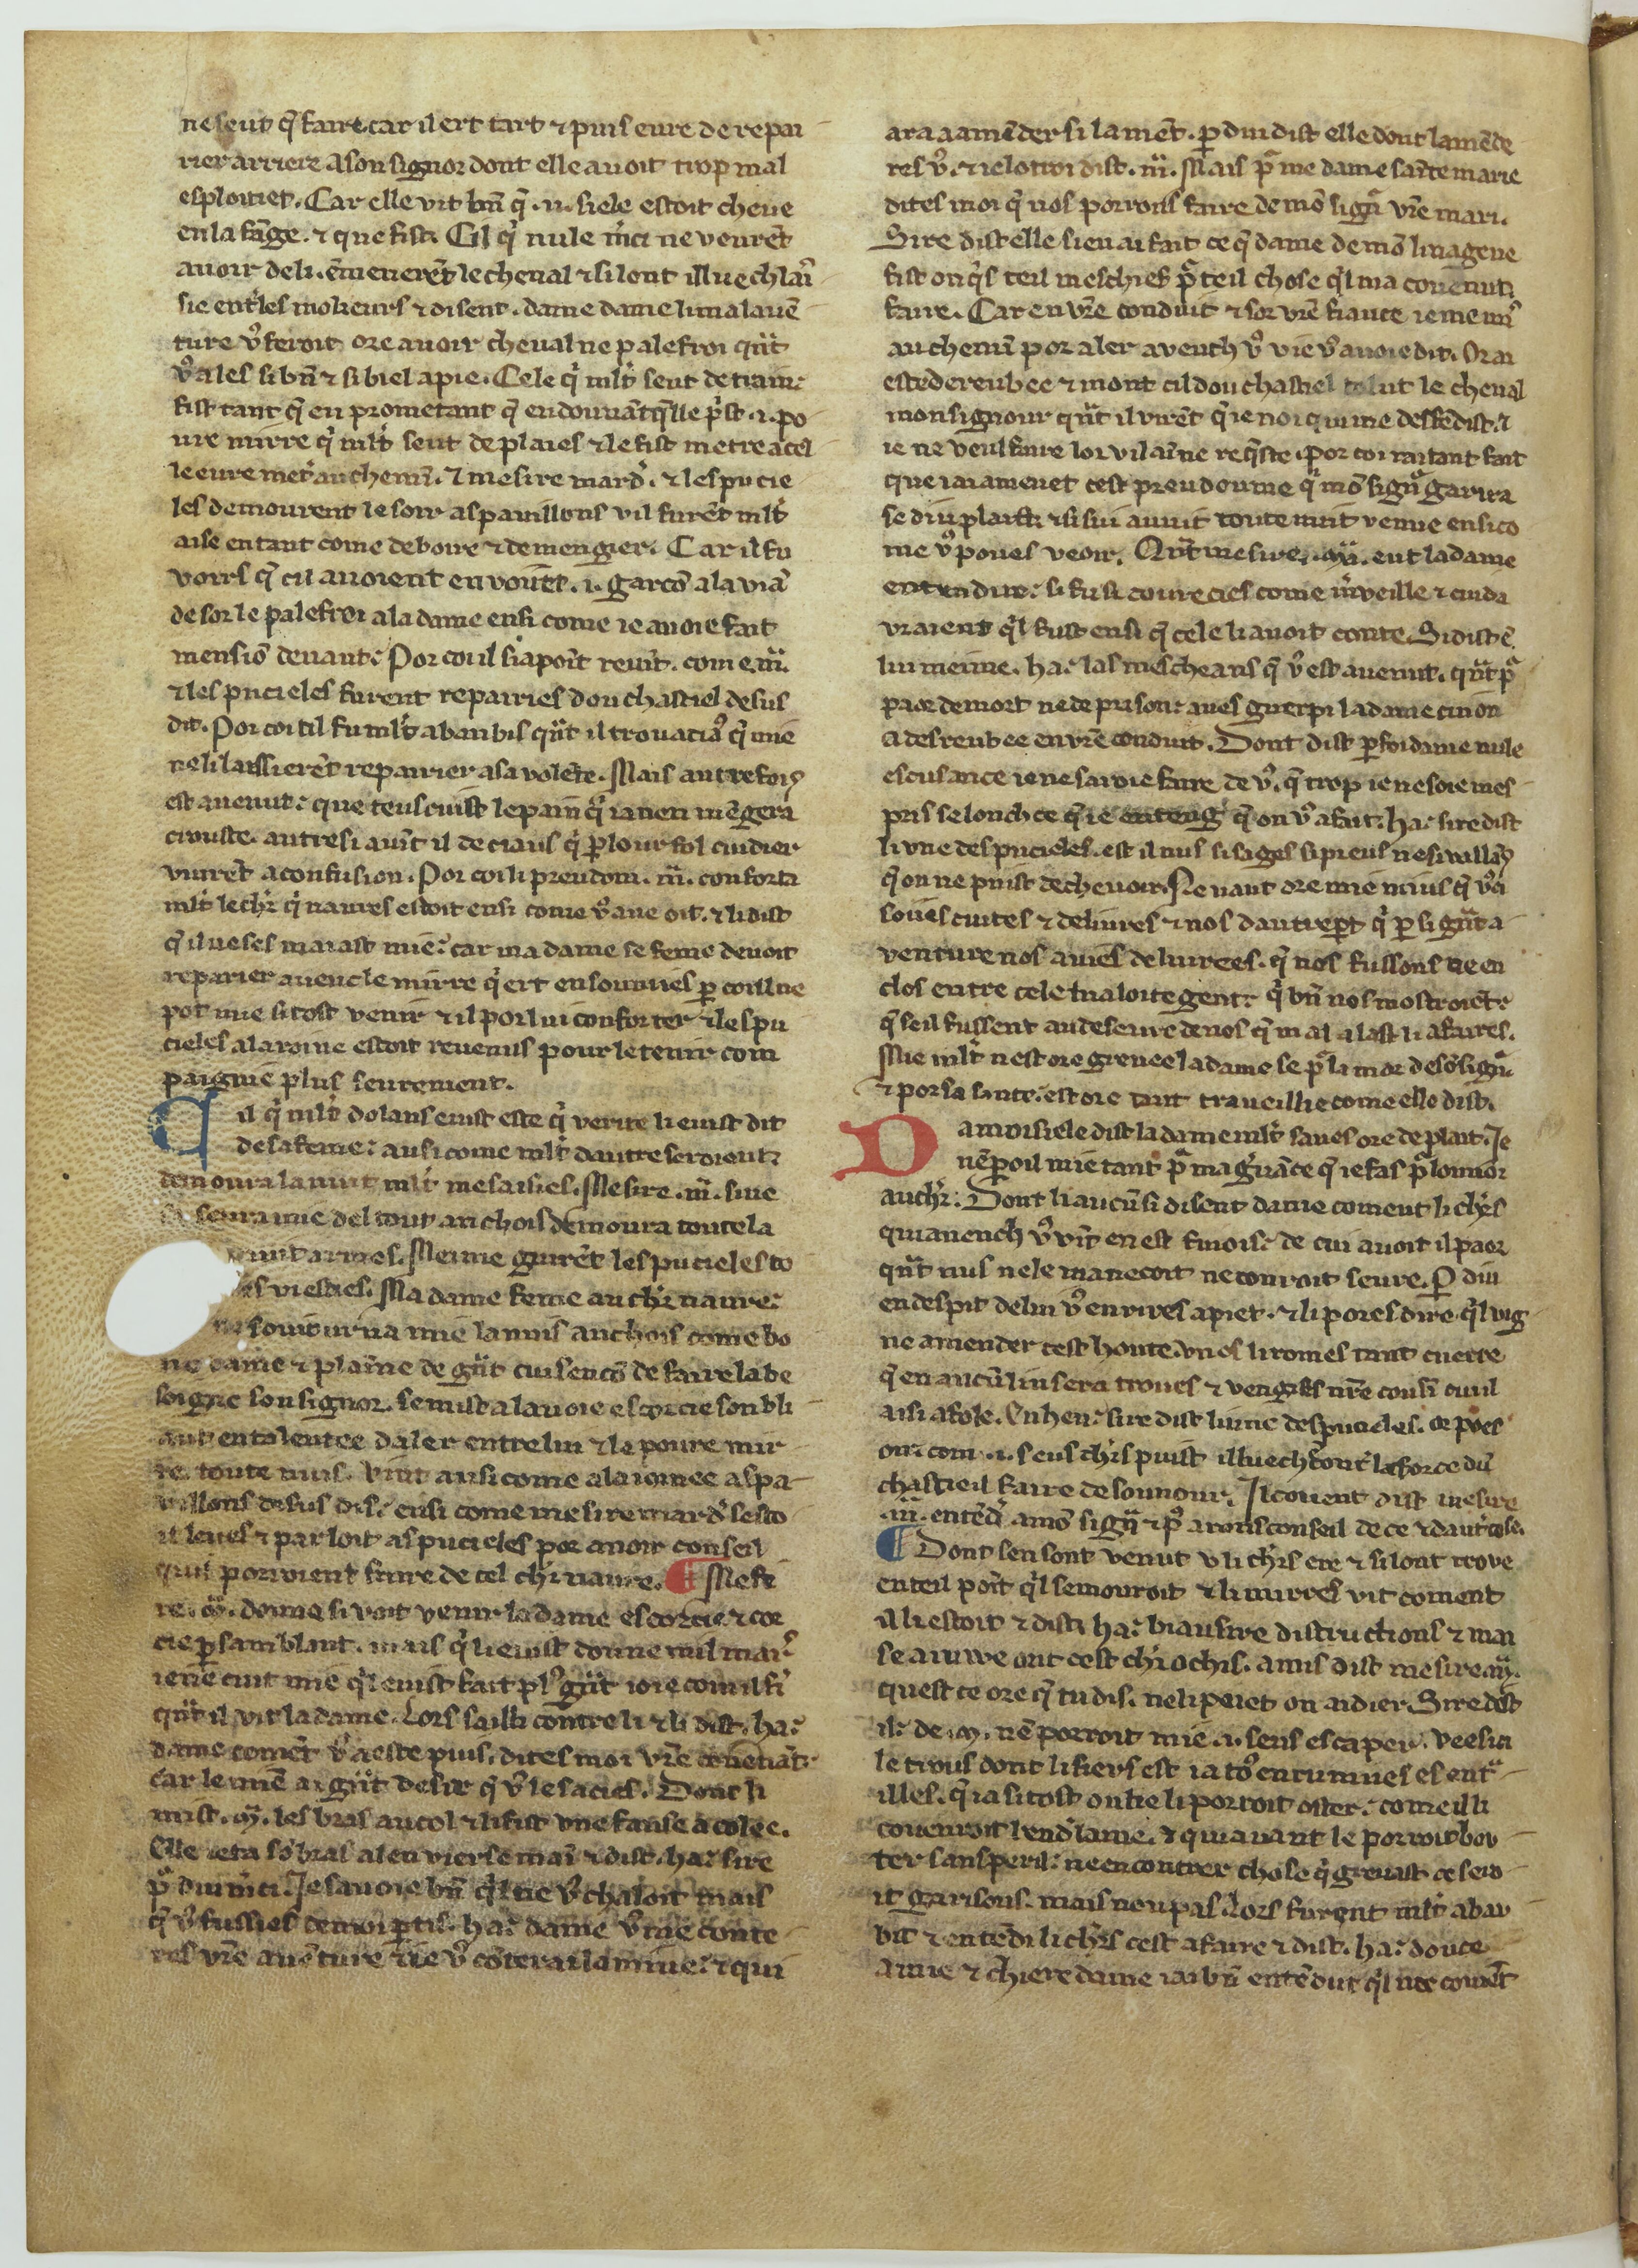 ne seut q̃ faire car il ert tart ⁊ puis eure de repai
rier arriere a son signor dont elle auoit trop mal
esploitiet. Car elle vit bñ q̃ .ii. siele estoit cheue
en la fãge. ⁊ que fist. Cil q̉ nule m̉ci ne vourẽt
auoir de li. ẽmenerẽt le cheual ⁊ si lont illuech lai
sie ent̉ les mokeurs ⁊ disent. dame dame li mal auẽ
ture v̉ feroit ore auoir cheual ne palefroi qñt
v̉ ales si bñ ⁊ si biel a pie. Cele q̉ mlt̉ seut de train:
fist tant q̃ en prometant q̃ en donnãt q̃lle p̉st .i. po
ure mirre q̉ mlt̉ seut de plaies ⁊ le fist metre a cel
le eure met̉ au chemĩ. ⁊ mesire mard̉. ⁊ les pucie
les demourent le soir as pauillons v il furẽt mlt̉
aise en tant come de boire ⁊ de mengier. Car il fu
voirs q̃ cil auoient enuoiiet .i. garcõ a la viã
de sor le palefroi a la dame ensi come ie auoie fait
mensiõ deuant: Por coi il si apoĩt reuĩt. come .m̃.
⁊ les pucieles furent repairies dou chastiel desus
dit. Por coi cil fu mlt̉ abaubis qñt il troua ciaꝰ q̉ mie
ne li laissierẽt repairier a sa volẽte. Mais autrefois
est auenut: que teus cuist le pain q̉ ia nen mẽgera
crouste. autresi auĩt il de ciaus q̉ p̱ lour fol cuidier
vinrẽt a confusion. Por coi li preudom .m̃. conforta
mlt̉ le ch̉r q̉ naures estoit ensi come v̉ aue oit. ⁊ li dist
q̃ il ne ses maiast mie: car ma dame se feme deuoit
reparier auenc le mirre q̉ ert ensonniiés p̱ coi il ne
pot mie si tost venir ⁊ il por lui conforter ⁊ les pu
cieles a la roine estoit reuenus pour le tenir com
paignie plus seurement.
Cil q̉ mlt̉ dolans euist este q̉ verite li euist dit
de sa feme: ausi come mlt̉ dautre seroient:
demoura la nuit mlt̉ mesaisiés. Mesire .m̃. si ne
seura mie del tout anchois demoura toute la
nuit armes. Meime guirẽt les pucieles to
es viesties. Ma dame feme au ch̉r naure:
soiourna mie la nuis anchois come bo
ne dame ⁊ plaine de gñt cuisencõ de faire la be
soigne son signor. se mist a la voie escorcie son bli
aut entalentee daler entre lui ⁊ le poure mir
re toute nuis. Vint ausi come a la iornee as pa
uillons desus dis: ensi come mesire mard̉ sesto
it leues ⁊ parloit as pucieles por auoir conseil
quil poruoient faire de cel ch̉r naure. ¶ Mesi
re .m̃. donne si voit venir la dame escorcie ⁊ cor
cie p̱ samblant. mais q̉ li euist donne mil mars
ie ne cuit mie q̉l euist fait plꝰ gñt ioie com il fi
qñt il vit la dame. Lors sailli contre li ⁊ li dist. ha:
dame comẽt v̉ a este puis. dites moi vr̃e couenãt:
car le miẽ ai gñt desir q̃ v̉ le sacies. Dont li
mist .m̃. les bras au col ⁊ li fist vne fause acolee.
Elle ieta sõ bras a len vierse maĩ ⁊ dist. ha: sire
p̉ diu m̉ci. Je sauoie bñ q̉l ne v̉ chaloit mais
q̃ v̉ fussies de moi p̱tis. ha: dame v̉ me conte
res vr̃e auẽture ⁊ ie v̉ cõterai la mine: ⁊ qui
ara a amẽder si lamẽt. p̱ diu dist elle dont lamẽde
res v̉. ⁊ ie lotroi dist .m̃. Mais p̉ me dame sainte marie
dites moi q̃ nos porrons faire de mõ signͬ vr̃e mari.
Sire dist elle sieu ai fait ce q̃ dame de mõ linage ne
fist onq̉s teil meschief p̉ teil chose q̉l ma couenut
faire. Car en vr̃e conduit ⁊ sor vr̃e fiance ie me mis
au chemĩ por aler auench v̉ v ie v̉ auoie dit. Or ai
este dereubee ⁊ mont cil dou chastiel tolut le cheual
monsignour qñt il virẽt q̃ ie noi qui me desfẽdist. ⁊
ie ne veul faire loi vilaĩne req̃ste. por coi iai tant fait
que iai amenet cest preudoume q̉ mõ signͬ garira
se diu plaist. ⁊ si sui anuit toute nuit venue ensi co
me v̉ poues veoir. Qñt mesire .m̃. eut la dame
entendue: si fu si coureciés come m̉veille ⁊ cuida
vraiem̃t q̉l fust ensi q̃ cele li auoit conte. Si dist ẽ
lui meime. ha: las mescheans q̃ v̉ est auenut. qñt p̉
paor de mort ne de prison: aues guerpi la dame cui on
a desreubee en vr̃e conduit. Dont dist p̱ foi dame nule
escusance ie ne saroie faire de v̉. q̃ trop ie ne soie mes
pris selonch ce q̃ ie enteng q̃ on v̉ a fait. ha: sire dist
li vne des pucieles. est il nus si sages si preus ne si vaillãs
q̃ on ne puist decheuoir. Ne vaut ore mie mius q̃ v̉ ci
soiies cuites ⁊ deliures ⁊ nos dautrep̱t q̉ p̱ si gñt a
venture nos aues deliurees. q̃ nos fussons tᷤ en
clos entre cele maloite gent: q̉ bñ nos mostroiẽt:
q̃ seil fussent au deseure de nos q̃ mal alast li afaires.
Mie mlt̉ nest ore greuee la dame se p̉ lamor de sõ signͬ
⁊ por sa sante. est ore tant traueillie come elle dist.
Damoisiele dist la dame mlt̉ saues ore de plait. Je
nẽ p̱oil mie tant p̉ ma g̉uãce q̃ ie fas p̉ lonnor
au ch̉r: Dont li aucũ si disent dame coment li ch̉rs
qui auench v̉ vĩt en est finois: de cui auoit il paor
qñt nus ne le manecoit ne couroit seure. P̱ diu
en despit de lui v̉ en irries a piet. ⁊ li pores dire q̉l vig
ne amender cest honte. v nos li romes tant cuerre
q̃ en aucũ liu sera troues ⁊ vengies nr̃e cousĩ cui il
a si afole. Enhen: sire dist li une des pucieles. or poes
oir com .i. seus ch̉rs puist illuech cont̉ la force du
chastieil faire de sounour. Il couient dist mesire
.m̃. entẽd̉ a mõ signͬ ⁊ p̉ arons conseil de ce ⁊ dautre cose.
¶ Dont sen sont venut v li ch̉rs ere ⁊ si lont troue
en teil poĩt q̉l se mouroit ⁊ li mirres vit coment
il li estoit ⁊ dist. ha: biau sire distructions ⁊ mai
se aiuwe ont cest ch̉r ochis. amis dist mesire .m̃.
quest ce ore q̃ tu dis. ne li peuet on aidier. Sire dist
il: de .m. nẽ porroit mie .i. seus escaper. vees ci
le trous dont li fiers est ia toꝰ enrumies es ent̉
illes. q̃ ia si tost on ne li porroit oster: come il li
couenroit rend̉ lame. ⁊ qui auant le porroit bou
ter sans peril: ne encontrer chose q̉ greuast ce sero
it garisons. mais neu pas. Lors furent mlt̉ abau
bit ⁊ entẽdi li ch̉rs cest afaire ⁊ dist. ha: douce
amie ⁊ chiere dame iai bñ entẽdut q̉l me couiẽt